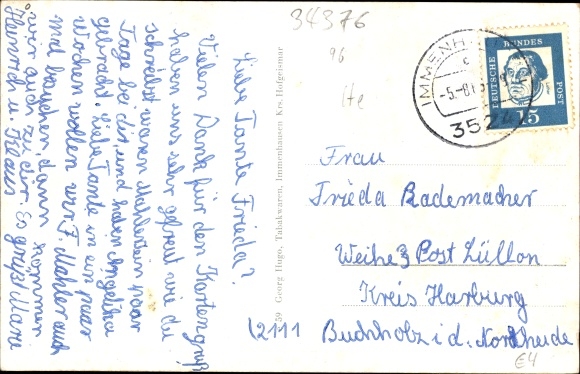 34376
96
He
Liebe Tante Frieda?
Vielen Dank für den Kartengruß
haben uns sehr gefreut wie du
schreibst waren Mahlers ein paar
Tage bei dir, und haben Angelika
gebracht. Liebe Tante in ein paar
Wochen wollen wir F. Mahler auch
mal besuchen, dann kommen
wir auch zu dir. Es grüßt
Heinrich u. Klaus
59 Georg Hugo, Tabakwaren, Immenhausen Krs. Hofgeismar
IMMENH
c
-5.-8
3524
DEUTSCHE
BUNDES
POST
15
Frau
Frieda Rademacher
Weihe 3 Post Lüllon
Kreis Harburg
(2111 Buchholz i. d. Nordheide
€4